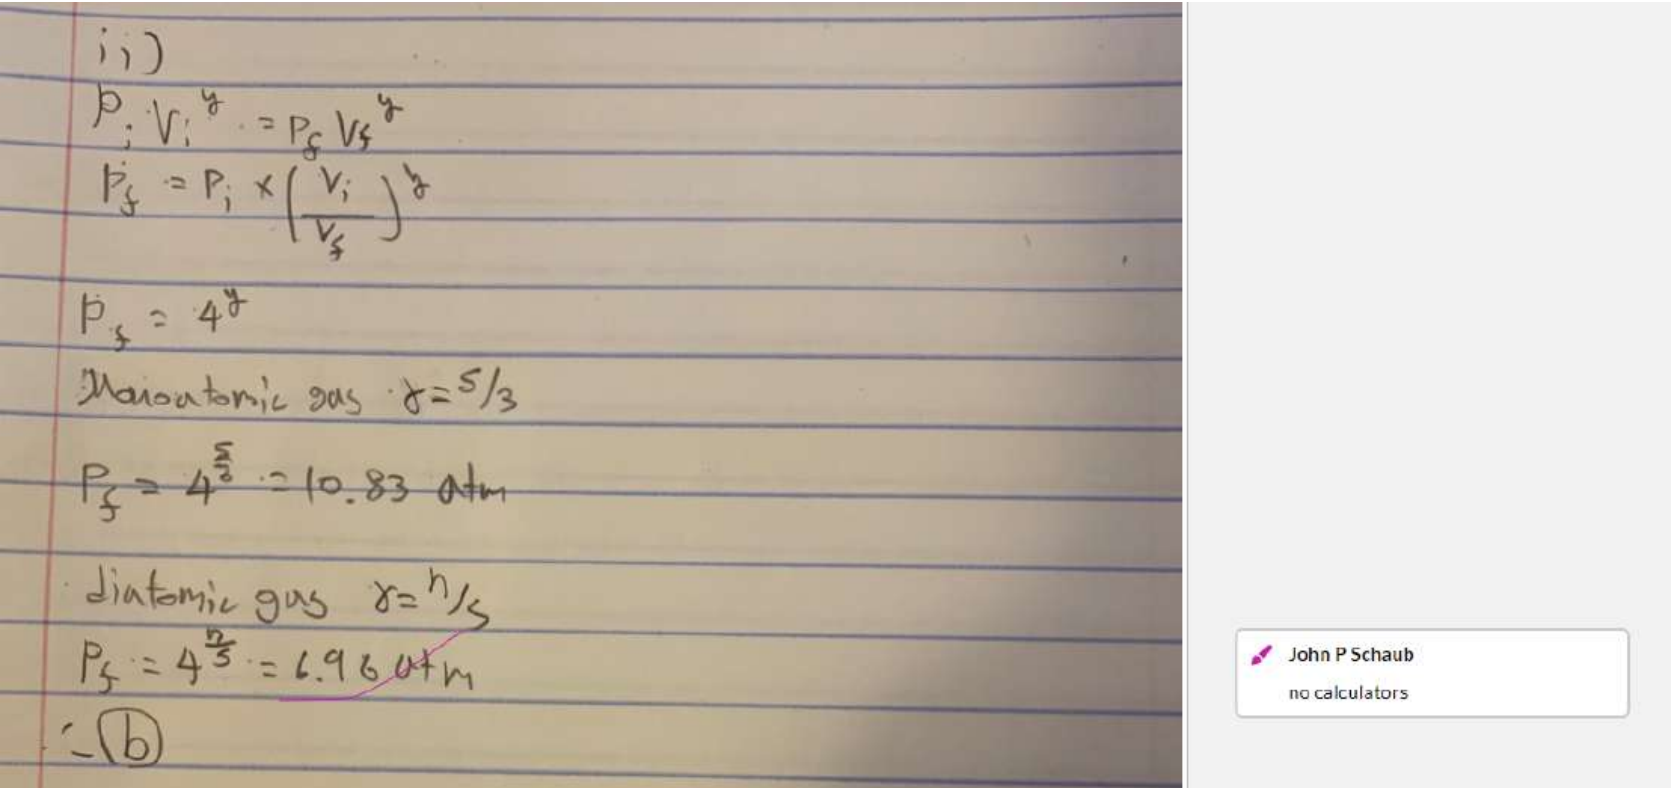 ii)
P_i V_i^γ = P_f V_f^γ
P_f = P_i × (V_i / V_f)^γ
P_f = 4^γ
Monoatomic gas γ = 5/3
P_f = 4^(5/3) = 10.83 atm
diatomic gas γ = 7/5
P_f = 4^(7/5) = 6.96 atm
∴ (b)
John P Schaub
no calculators